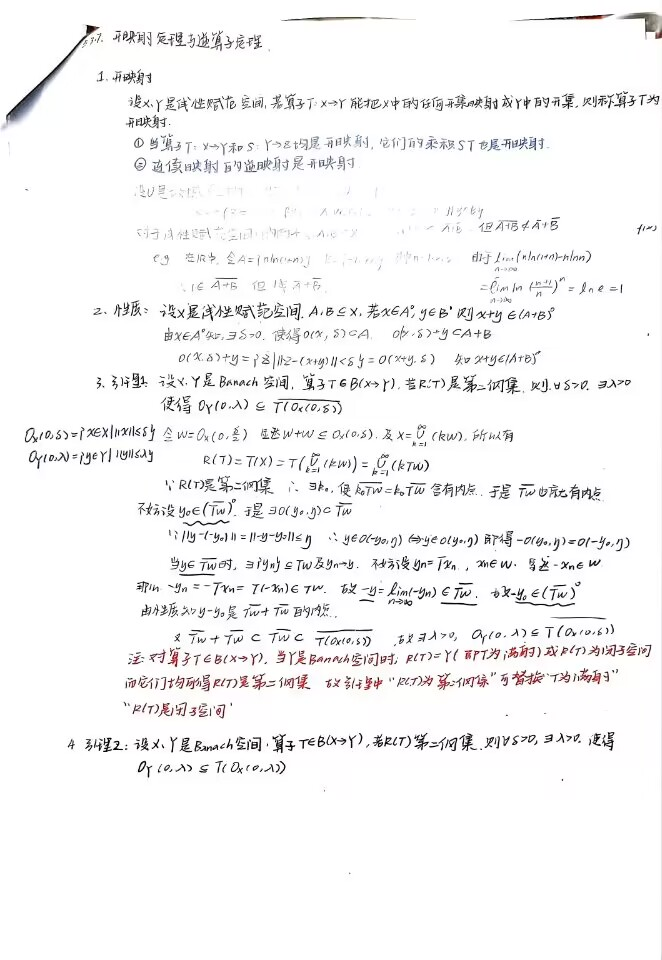 §3.7. 开映射定理与逆算子定理.
1. 开映射
设X,Y是线性赋范空间,若算子T:X→Y能把X中的任何开集映射成Y中的开集,则称算子T为
开映射.
① 当算子T:X→Y和S:Y→Z均是开映射,它们的乘积ST也是开映射.
② 连续映射的逆映射是开映射.
对于线性赋范空间 但 \overline{A+B} ⊄ \overline{A}+\overline{B}
e.g 在R中,令A={n ln(1+n)} 由于 lim_{n→∞}(n ln(1+n)-n ln n)
1∈\overline{A+B} 但 1∉\overline{A}+\overline{B}. = lim_{n→∞} ln(\frac{n+1}{n})^n = ln e = 1
2. 性质: 设X是线性赋范空间,A,B⊆X,若x∈A°,y∈B°则x+y∈(A+B)°
由x∈A°知,∃δ>0,使得O(x,δ)⊂A. O(x,δ)+y⊂A+B
O(x,δ)+y={z| ||z-(x+y)||<δ}=O(x+y,δ) 知x+y∈(A+B)°
3. 引理1: 设X,Y是Banach空间,算子T∈B(X→Y),若R(T)是第二纲集,则∀δ>0,∃λ>0
使得 O_Y(0,λ) ⊆ \overline{T(O_X(0,δ))}
O_X(0,δ)={x∈X| ||x||≤δ} 令W=O_X(0,\frac{δ}{2}) 显然W+W⊆O_X(0,δ),及X=∪_{k=1}^∞(kW),所以有
O_Y(0,λ)={y∈Y| ||y||≤λ} R(T)=T(X)=T(∪_{k=1}^∞(kW))=∪_{k=1}^∞(kTW)
∵R(T)是第二纲集 ∴∃k₀,使\overline{k₀TW}=k₀\overline{TW}含有内点.于是\overline{TW}也有内点
不妨设y₀∈(\overline{TW})°,于是∃O(y₀,η)⊂\overline{TW}
∵||y-(-y₀)||=||-y-y₀||≤η ∴y∈O(-y₀,η)⇔-y∈O(y₀,η)即得-O(y₀,η)=O(-y₀,η)
当y∈\overline{TW}时,∃{y_n}⊆TW及y_n→y.不妨设y_n=Tx_n, x_n∈W. 显然-x_n∈W
那么 -y_n=-Tx_n=T(-x_n)∈TW. 故-y=lim_{n→∞}(-y_n)∈\overline{TW}. 故-y₀∈(\overline{TW})°
由性质知y₀-y₀是\overline{TW}+\overline{TW}的内点.
又 \overline{TW}+\overline{TW} ⊂ \overline{TW} ⊂ \overline{T(O_X(0,δ))},故∃λ>0, O_Y(0,λ)⊆\overline{T(O_X(0,δ))}
注:对算子T∈B(X→Y),当Y是Banach空间时,R(T)=Y(即T为满射)或R(T)为闭子空间
而它们均可得R(T)是第二纲集 故引理中“R(T)为第二纲集”可替换“T为满射”
“R(T)是闭子空间”
4 引理2: 设X,Y是Banach空间,算子T∈B(X→Y),若R(T)第二纲集,则∀δ>0,∃λ>0,使得
O_Y(0,λ)⊆T(O_X(0,λ))